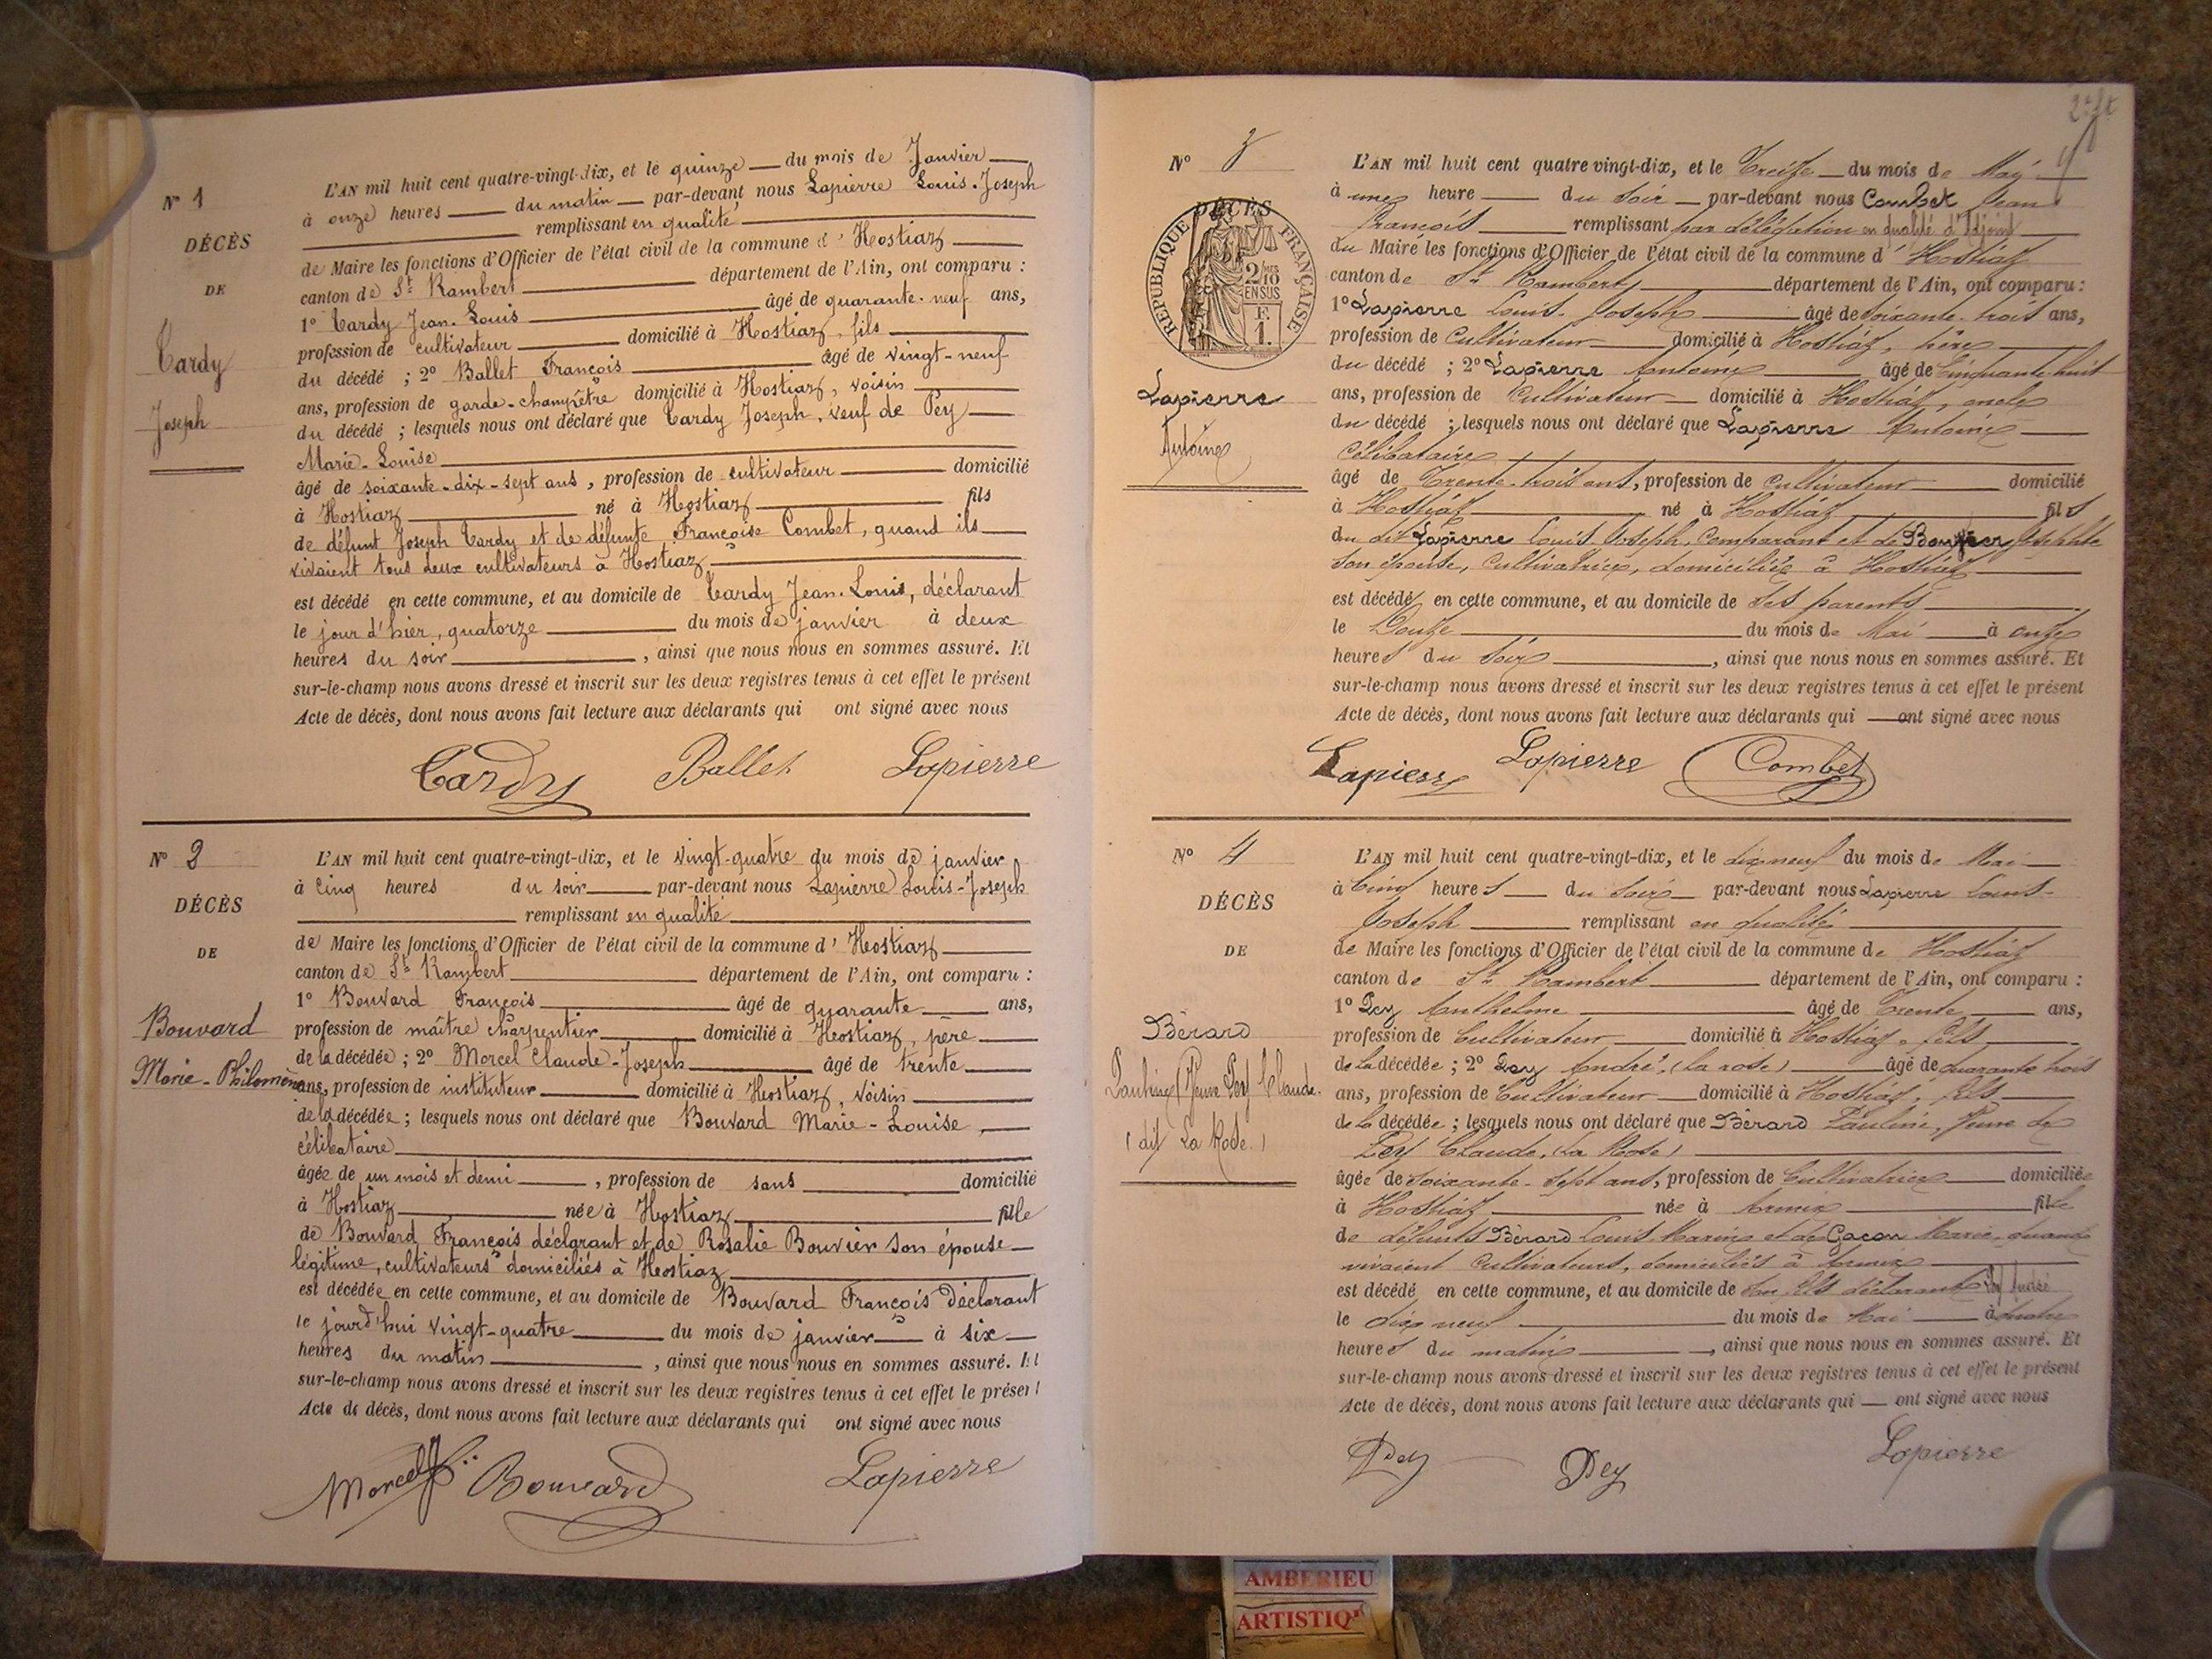 N° 1
DÉCÈS
DE
Tardy
Joseph
L'AN mil huit cent quatre-vingt-dix, et le quinze du mois de Janvier
à onze heures du matin par-devant nous Lapierre Louis-Joseph
remplissant en qualité
de Maire les fonctions d'Officier de l'état civil de la commune d'Hostiaz
canton de St Rambert département de l'Ain, ont comparu :
1° Tardy Jean-Louis âgé de quarante-neuf ans,
profession de cultivateur domicilié à Hostiaz, fils
du décédé ; 2° Ballet François âgé de vingt-neuf
ans, profession de garde-champêtre domicilié à Hostiaz, voisin
du décédé ; lesquels nous ont déclaré que Tardy Joseph, veuf de Pey
Marie-Louise
âgé de soixante-dix-sept ans, profession de cultivateur domicilié
à Hostiaz né à Hostiaz fils
de défunt Joseph Tardy et de défunte Françoise Combet, quand ils
vivaient tous deux cultivateurs à Hostiaz
est décédé en cette commune, et au domicile de Tardy Jean-Louis, déclarant
le jour d'hier, quatorze du mois de janvier à deux
heures du soir, ainsi que nous nous en sommes assuré. Et
sur-le-champ nous avons dressé et inscrit sur les deux registres tenus à cet effet le présent
Acte de décès, dont nous avons fait lecture aux déclarants qui ont signé avec nous
Tardy Ballet Lapierre
N° 2
DÉCÈS
DE
Bouvard
Marie-Philomène
L'AN mil huit cent quatre-vingt-dix, et le vingt-quatre du mois de janvier
à cinq heures du soir par-devant nous Lapierre Louis-Joseph
remplissant en qualité
de Maire les fonctions d'Officier de l'état civil de la commune d'Hostiaz
canton de St Rambert département de l'Ain, ont comparu :
1° Bouvard François âgé de quarante ans,
profession de maître charpentier domicilié à Hostiaz, père
de la décédée ; 2° Morcel Claude-Joseph âgé de trente
ans, profession de instituteur domicilié à Hostiaz, voisin
de la décédée ; lesquels nous ont déclaré que Bouvard Marie-Louise,
célibataire
âgée de un mois et demi, profession de sans domicilié
à Hostiaz née à Hostiaz fille
de Bouvard François déclarant et de Rosalie Bouvier son épouse
légitime, cultivateurs domiciliés à Hostiaz
est décédée en cette commune, et au domicile de Bouvard François déclarant
le jourd'hui vingt-quatre du mois de janvier à six
heures du matin, ainsi que nous nous en sommes assuré. Et
sur-le-champ nous avons dressé et inscrit sur les deux registres tenus à cet effet le présent
Acte de décès, dont nous avons fait lecture aux déclarants qui ont signé avec nous
Morcel Bouvard Lapierre
N° 3
RÉPUBLIQUE FRANÇAISE
DÉCÈS
2/10 MES
EN SUS
F.
1.
Lapierre
Antoine
L'AN mil huit cent quatre-vingt-dix, et le Treize du mois de Mai
à une heure du soir par-devant nous Combet Jean
François remplissant par délégation en qualité d'Adjoint
du Maire les fonctions d'Officier de l'état civil de la commune d'Hostiaz
canton de St Rambert département de l'Ain, ont comparu :
1° Lapierre Louis-Joseph âgé de soixante-trois ans,
profession de Cultivateur domicilié à Hostiaz, père
du décédé ; 2° Lapierre Antoine âgé de Cinquante-huit
ans, profession de Cultivateur domicilié à Hostiaz, oncle
du décédé ; lesquels nous ont déclaré que Lapierre Antoine
célibataire
âgé de Trente-trois ans, profession de Cultivateur domicilié
à Hostiaz né à Hostiaz fils
du dit Lapierre Louis Joseph, Comparant et de Bouvier
son épouse, Cultivatrice, domiciliée à Hostiaz
est décédé en cette commune, et au domicile de ses parents
le Douze du mois de Mai à onze
heures du soir, ainsi que nous nous en sommes assuré. Et
sur-le-champ nous avons dressé et inscrit sur les deux registres tenus à cet effet le présent
Acte de décès, dont nous avons fait lecture aux déclarants qui ont signé avec nous
Lapierre Lapierre Combet
N° 4
DÉCÈS
DE
Bérard
Pauline (Veuve Pey Claude.
(dit La Rose)
L'AN mil huit cent quatre-vingt-dix, et le dix neuf du mois de Mai
à Cinq heures du soir par-devant nous Lapierre Louis-
Joseph remplissant en qualité
de Maire les fonctions d'Officier de l'état civil de la commune de Hostiaz
canton de St Rambert département de l'Ain, ont comparu :
1° Pey Anthelme âgé de Trente ans,
profession de Cultivateur domicilié à Hostiaz, fils
de la décédée ; 2° Pey André, (La rose) âgé de quarante trois
ans, profession de Cultivateur domicilié à Hostiaz, fils
de la décédée ; lesquels nous ont déclaré que Bérard Pauline, Veuve de
Pey Claude, (La Rose)
âgée de soixante-sept ans, profession de Cultivatrice domiciliée
à Hostiaz née à Armix fille
de défunts Bérard Louis Marin et de Gacon Marie, quand
vivaient Cultivateurs, domiciliés à Armix
est décédé en cette commune, et au domicile de son fils déclarant Pey André
le dix neuf du mois de Mai à quatre
heures du matin, ainsi que nous nous en sommes assuré. Et
sur-le-champ nous avons dressé et inscrit sur les deux registres tenus à cet effet le présent
Acte de décès, dont nous avons fait lecture aux déclarants qui ont signé avec nous
Pey Pey Lapierre
AMBERIEU
ARTISTIQ